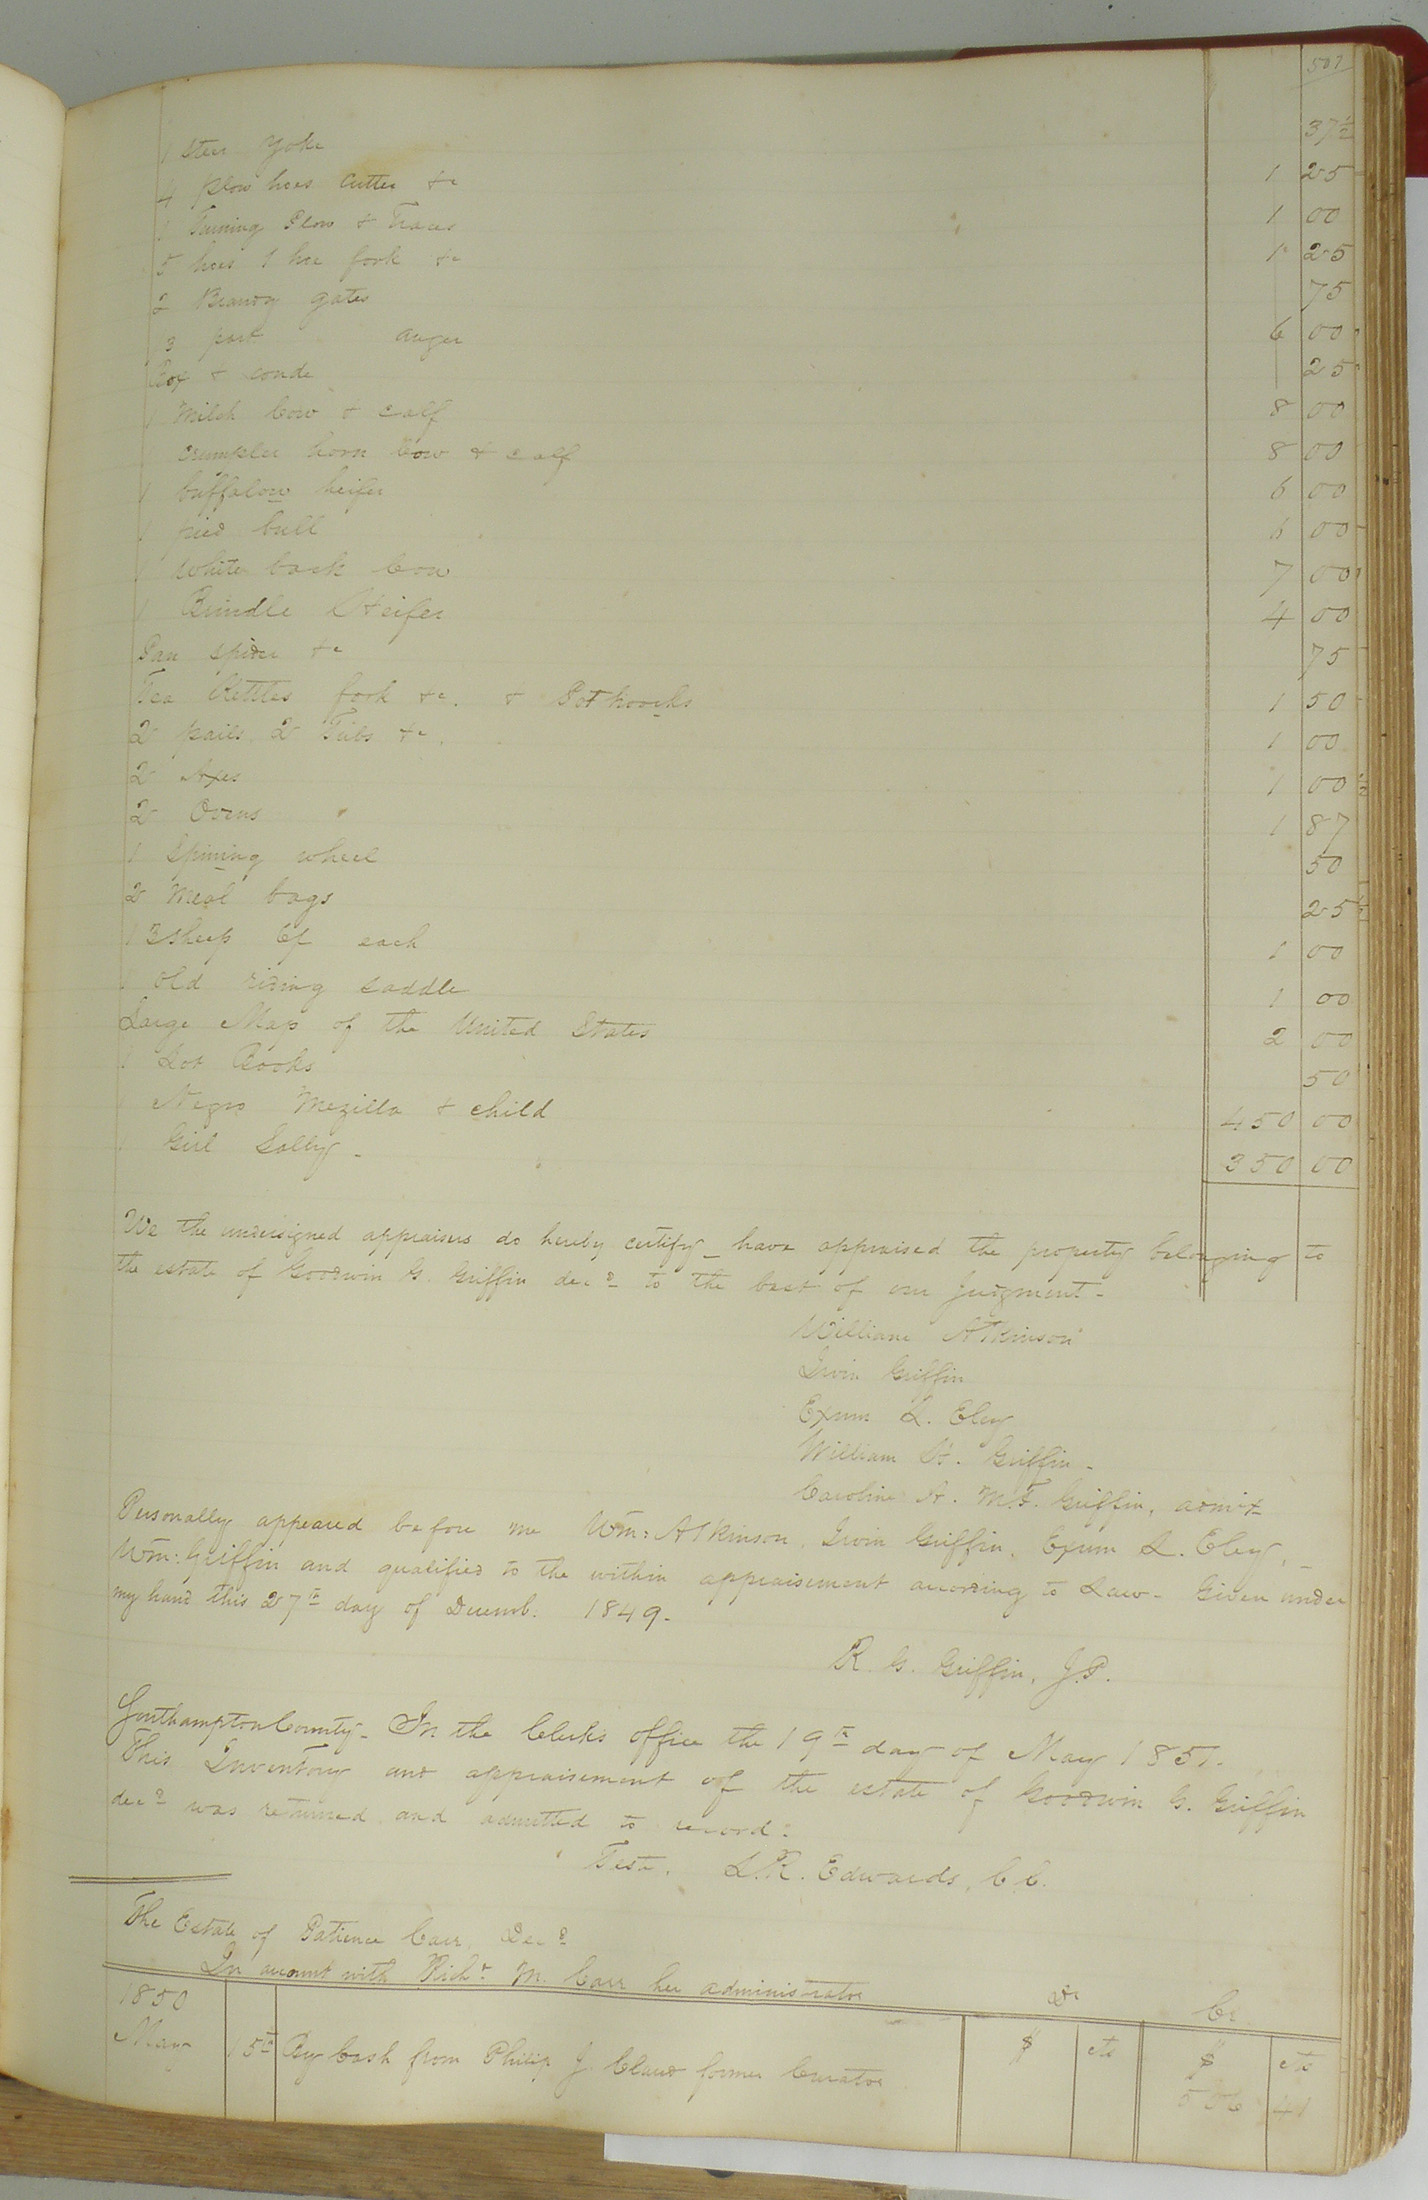 507
1 Steer Yoke 37½
4 plow hoes Cutter &c 1 25
1 Turning Plow & Traces 1 00
5 hoes 1 hoe fork &c 1 25
2 Brandy gates 75
3 part auger 6 00
Box & 25
1 Milch Cow & calf 8 00
1 crumpler horn Cow & calf 8 00
1 buffalow heifer 6 00
1 pied bull 6 00
1 white back Cow 7 00
1 Brindle Heifer 4 00
Pan spider &c 75
Tea Kettles fork &c. & Pothoocks 1 50
2 pails 2 Tubs &c. 1 00
2 Axes 1 00
2 Ovens 1 87½
1 Spining wheel 50
2 Meal bags 25
13 sheep 6/ each 1 00
1 old riding saddle 1 00
Large Map of the United States 2 00
1 Lot Books 50
1 Negro Mezilla & child 450 00
1 Girl Sally - 350 00
We the undersigned appraisers do hereby certify - have appraised the property belonging to
the estate of Goodwin G. Griffin decd to the best of our Judgment -
William Atkinson
Irvin Griffin
Exum L. Eley
William H. Griffin -
Caroline A. M.F. Griffin, admix
Personally appeared before me Wm: Atkinson, Irvin Griffin, Exum L. Eley, -
Wm: Griffin and qualified to the within appraisement according to Law - Given under
my hand this 27th day of Decemb. 1849 -
R. G. Griffin, J.P.
Southampton County - In the Clerks office the 19th day of May 1851.
This Inventory and appraisement of the estate of Goodwin G. Griffin
decd was returned and admitted to record.
Teste. L.R. Edwards, C.C.
The Estate of Patience Carr, Decd
In account with Richd M. Carr her administrator Dr Cr
1850 $ cts $ cts
May 15th By Cash from Philip J. Claud former Curator 506 41